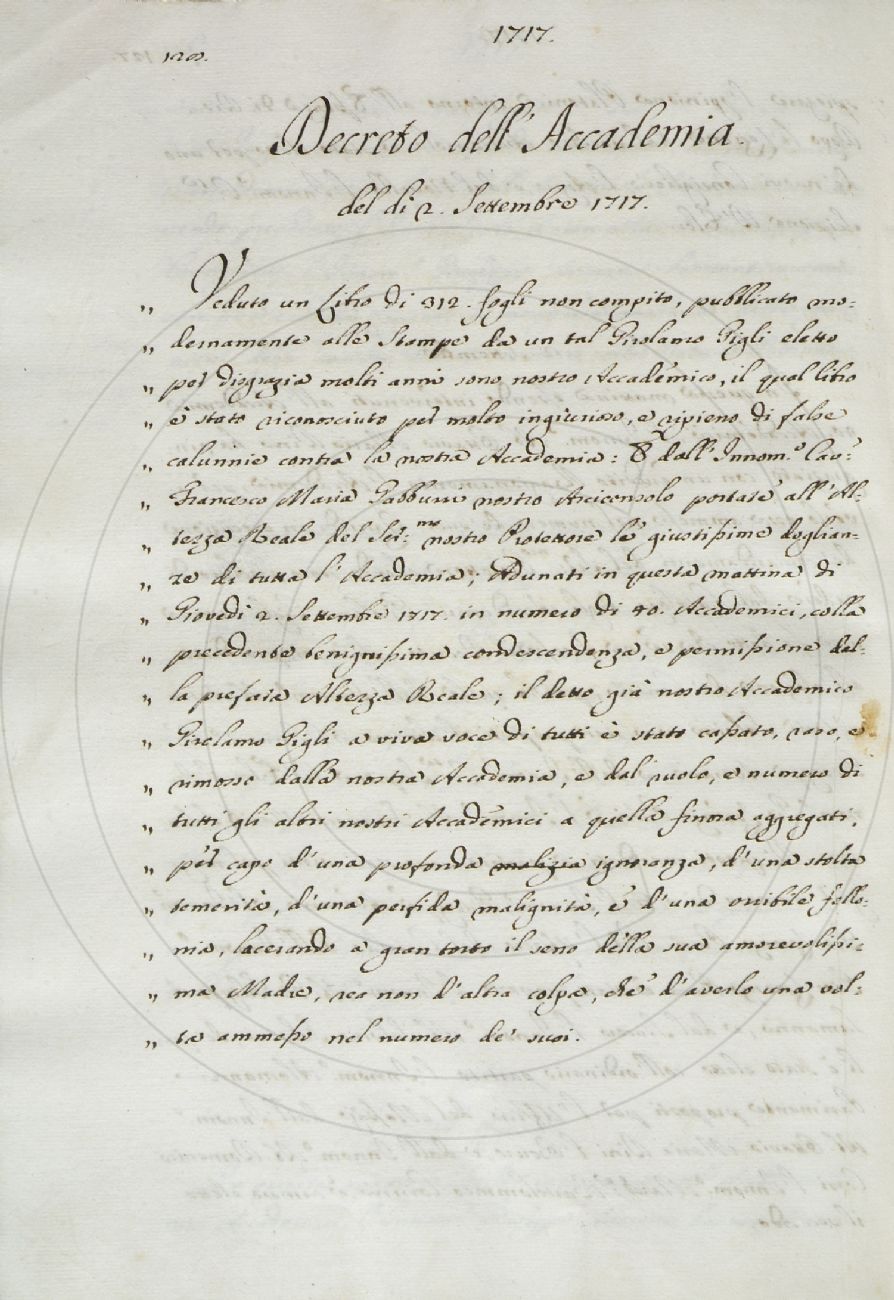 1717.
Decreto dell'Accademia.
del dì 2. Settembre 1717.
„ Veduto un Libro di 312. fogli non compito, pubblicato mo-
„ dernamente alle Stampe da un tal Girolamo Gigli eletto
„ per disgrazia molti anni sono nostro Accademico, il qual libro
„ è stato riconosciuto per molto ingiurioso, e ripieno di false
„ calunnie contra la nostra Accademia: E dall'Innom.º Cav.ʳ
„ Francesco Maria Gabburri nostro Arciconsolo portate all'Al-
„ tezza Reale del Ser.ᵐᵒ nostro Protettore le giustissime doglian-
„ ze di tutta l'Accademia; Adunati in questa mattina di
„ Giovedì 2. Settembre 1717. in numero di 40. Accademici, colla
„ precedente benignissima condescendenza, e permissione del-
„ la prefata Altezza Reale; il detto già nostro Accademico
„ Girolamo Gigli a viva voce di tutti è stato cassato, raso, e
„ rimosso dalla nostra Accademia, e dal ruolo, e numero di
„ tutti gli altri nostri Accademici a quella finora aggregati,
„ per capo d'una profonda malizia ignoranza, d'una stolta
„ temerità, d'una perfida malignità, e d'una orribile fello-
„ nia, lacerando a gran torto il seno della sua amorevolissi-
„ ma Madre, rea non d'altra colpa, che d'averlo una vol-
„ ta ammesso nel numero de' suoi.